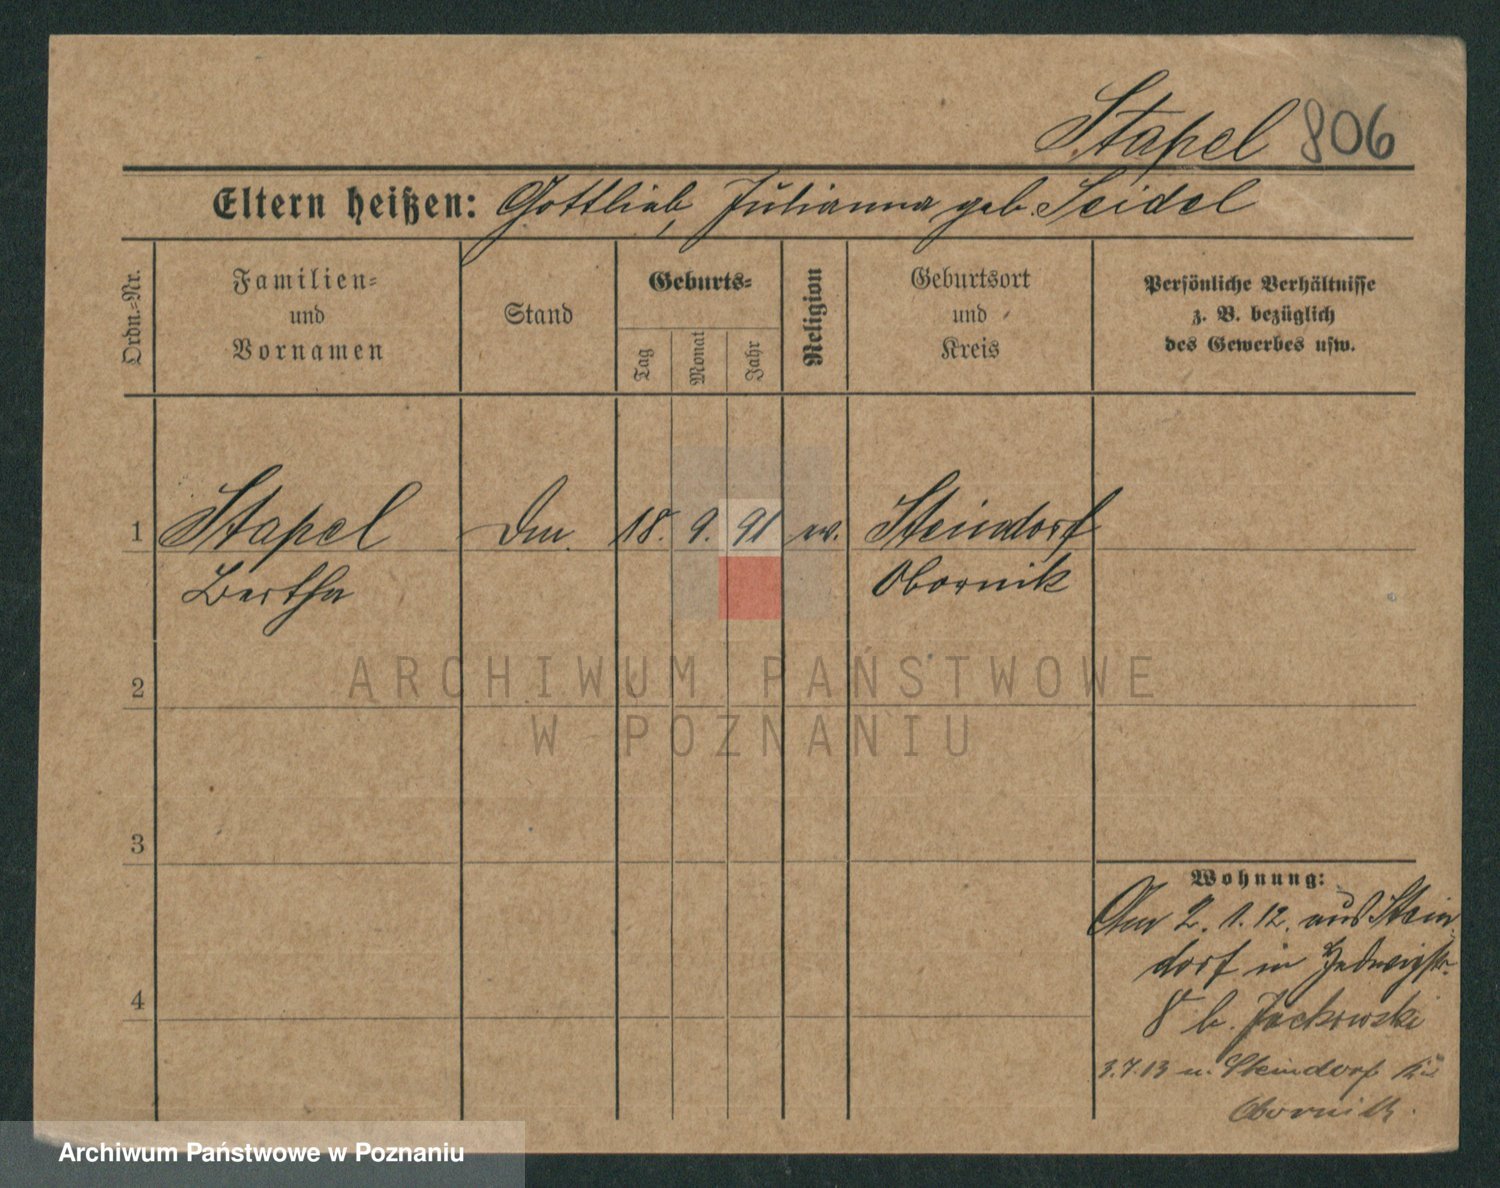 Stapel 806
Eltern heißen: Gottlieb, Julianna geb. Seidel
Ordn.-Nr.
Familien- und Vornamen
Stand
Geburts-
Tag
Monat
Jahr
Religion
Geburtsort und Kreis
Persönliche Verhältnisse
z. B. bezüglich
des Gewerbes usw.
1 Stapel 18. 9. 91 ev. Steindorf
Bertha Obornik
2
3
4
Wohnung:
Am 2. 1. 12. aus Stein
dorf in Hedwigstr.
8 b. Jackowski
3.7.13 n. Steindorf
Obornik.
ARCHIWUM PAŃSTWOWE
W POZNANIU
Archiwum Państwowe w Poznaniu